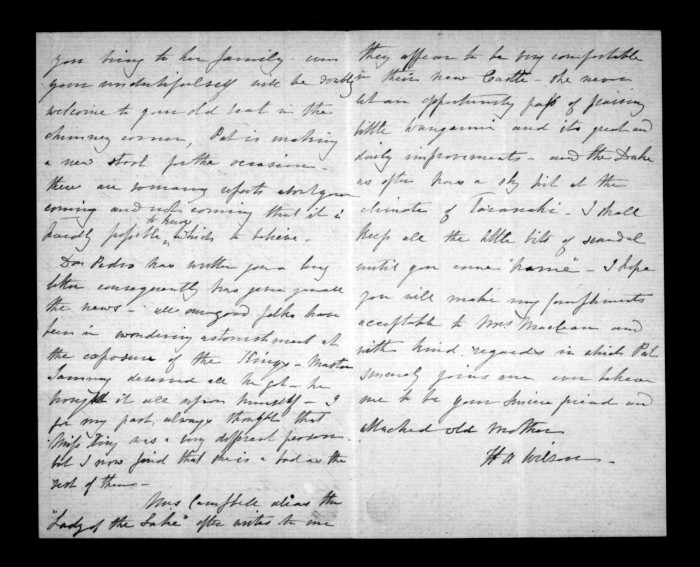 you bring to her family even
your undutiful self will be doubly
welcome to your old seat in the
chimney corner, Pat is making
a new stool for the occasion -
there are so many reports about your
coming and not coming that it is
hardly possible to know which to believe -
Don Pedro has written you a long
letter consequently has given you all
the news - all our good folks have
been in wondering astonishment at
the exposure of the Kings - Master
Sammy deserved all he got - he
brought it all upon himself - I
for my part, always thought that
Miss King was a very different person
but I now find that she is as bad as the
rest of them -
Mrs Campbell alias the
"Lady of the Lake" often writes to me
they appear to be very comfortable
in their new Castle - she never
let an opportunity pass of praising
little Wanganui and its great and
daily improvements - and the Duke
as often has a sly hit at the
climate of Taranaki - I shall
keep all the little bits of scandal
until you come "hame" - I hope
you will make my compliments
acceptable to Mrs Maclean and
with kind regards in which Pat
sincerely joins me ever believe
me to be your sincere friend and
attached old Mother
H A Wilson -